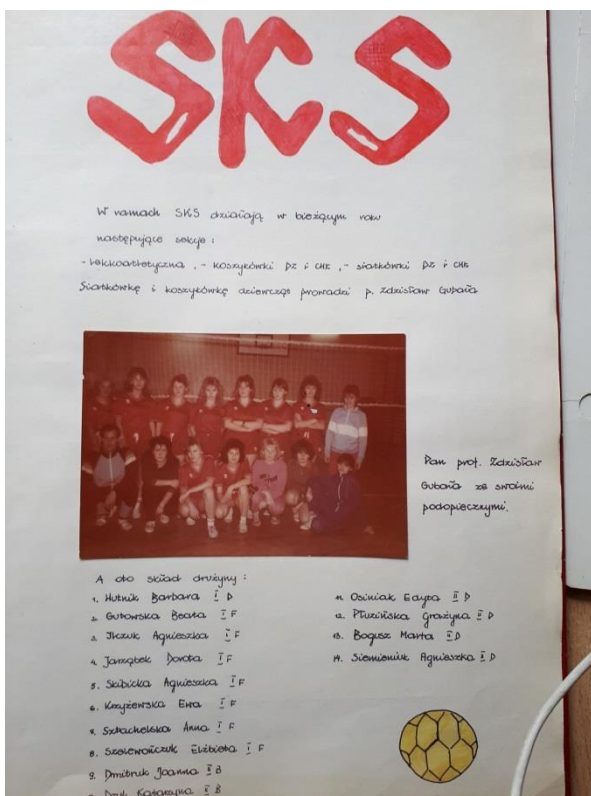 SKS
W ramach SKS działają w bieżącym roku
następujące sekcje :
- lekkoatletyczna , - koszykówki DZ i CHŁ , - siatkówki DZ i CHŁ
Siatkówkę i koszykówkę dziewcząt prowadzi p. Zdzisław Gubała
Pan prof. Zdzisław
Gubała ze swoimi
podopiecznymi.
A oto skład drużyny :
1. Hutnik Barbara I D
2. Gutowska Beata I F
3. Ilczuk Agnieszka I F
4. Jarząbek Dorota I F
5. Skibicka Agnieszka I F
6. Krzyżewska Ewa I F
7. Sztachelska Anna I F
8. Szelewończuk Elżbieta I F
9. Dmitruk Joanna II B
Katarzyna II B
11. Osiniak Edyta II D
12. Płuzińska Grażyna II D
13. Bogusz Marta II D
14. Siemieniuk Agnieszka II D